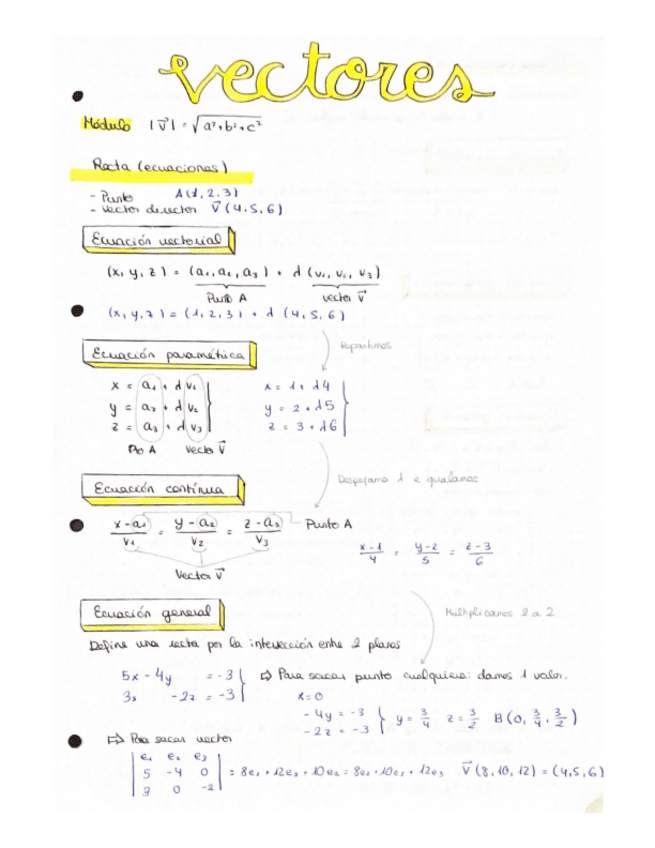 vectores
Módulo |v⃗| = √a²+b²+c²
Recta (ecuaciones)
- Punto A(1,2,3)
- Vector director v⃗(4,5,6)
Ecuación vectorial
(x,y,z) = (a₁,a₂,a₃) + λ(v₁,v₂,v₃)
Punto A vector v⃗
(x,y,z) = (1,2,3) + λ(4,5,6)
Repartimos
Ecuación paramétrica
x = a₁ + λv₁ x = 1 + λ4
y = a₂ + λv₂ y = 2 + λ5
z = a₃ + λv₃ z = 3 + λ6
Pto A Vector v⃗
Despejamo λ e igualamos
Ecuación contínua
(x-a₁)/v₁ = (y-a₂)/v₂ = (z-a₃)/v₃ Punto A
(x-1)/4 = (y-2)/5 = (z-3)/6
Vector v⃗
Ecuación general
Multiplicamos 2 a 2
Define una recta por la intersección entre 2 planos
5x - 4y = -3 ⇒ Para sacar punto cualquiera: damos 1 valor.
3x - 2z = -3 x=0
-4y = -3 y = 3/4 z = 3/2 B(0, 3/4, 3/2)
-2z = -3
⇒ Para sacar vector
e₁ e₂ e₃
5 -4 0 = 8e₁ + 12e₃ + 10e₂ = 8e₁ + 10e₂ + 12e₃ v⃗(8,10,12) = (4,5,6)
3 0 -2